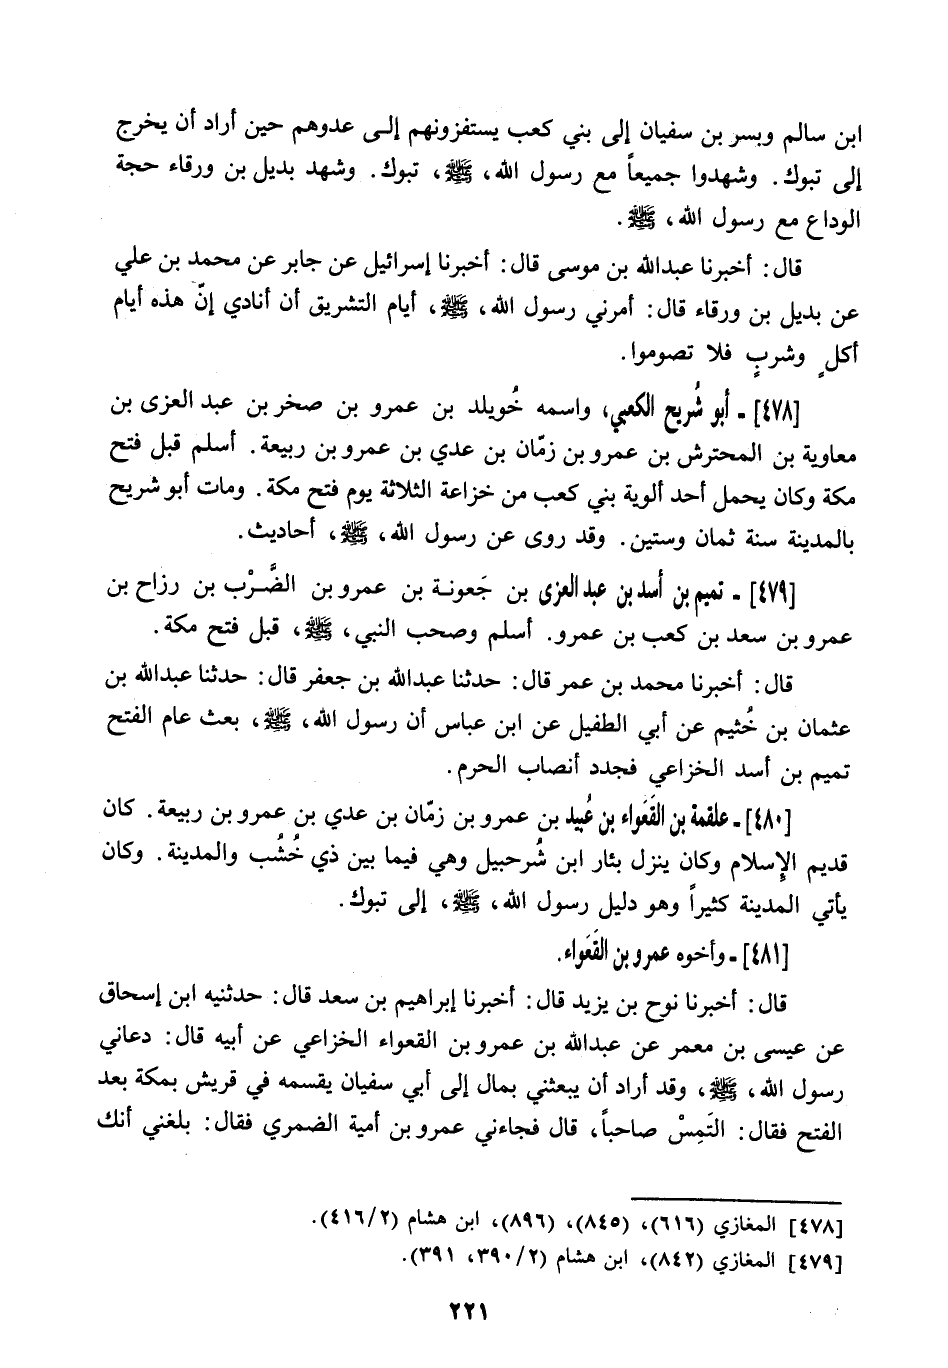 ابن سالم وبسر بن سفيان إلى بني كعب يستفزونهم إلى عدوهم حين أراد أن يخرج
إلى تبوك. وشهدوا جميعاً مع رسول الله، ﷺ، تبوك. وشهد بديل بن ورقاء حجة
الوداع مع رسول الله، ﷺ.
قال: أخبرنا عبدالله بن موسى قال: أخبرنا إسرائيل عن جابر عن محمد بن علي
عن بديل بن ورقاء قال: أمرني رسول الله، ﷺ، أيام التشريق أن أنادي إنّ هذه أيام
أكلٍ وشربٍ فلا تصوموا.
[٤٧٨] ـ أبو شُريح الكعبي، واسمه خُويلد بن عمرو بن صخر بن عبد العزى بن
معاوية بن المحترش بن عمرو بن زمّان بن عدي بن عمرو بن ربيعة. أسلم قبل فتح
مكة وكان يحمل أحد ألوية بني كعب من خزاعة الثلاثة يوم فتح مكة. ومات أبو شريح
بالمدينة سنة ثمان وستين. وقد روى عن رسول الله، ﷺ، أحاديث.
[٤٧٩] ـ تميم بن أسد بن عبد العزى بن جَعونة بن عمرو بن الضَّرْب بن رزاح بن
عمرو بن سعد بن كعب بن عمرو. أسلم وصحب النبي، ﷺ، قبل فتح مكة.
قال: أخبرنا محمد بن عمر قال: حدثنا عبدالله بن جعفر قال: حدثنا عبدالله بن
عثمان بن خُثيم عن أبي الطفيل عن ابن عباس أن رسول الله، ﷺ، بعث عام الفتح
تميم بن أسد الخزاعي فجدد أنصاب الحرم.
[٤٨٠] ـ علقمة بن القَعَواء بن عُبيد بن عمرو بن زمّان بن عدي بن عمرو بن ربيعة. كان
قديم الإسلام وكان ينزل بئار ابن شُرحبيل وهي فيما بين ذي خُشُب والمدينة. وكان
يأتي المدينة كثيراً وهو دليل رسول الله، ﷺ، إلى تبوك.
[٤٨١] ـ وأخوه عمرو بن القَعَواء.
قال: أخبرنا نوح بن يزيد قال: أخبرنا إبراهيم بن سعد قال: حدثنيه ابن إسحاق
عن عيسى بن معمر عن عبدالله بن عمرو بن القعواء الخزاعي عن أبيه قال: دعاني
رسول الله، ﷺ، وقد أراد أن يبعثني بمال إلى أبي سفيان يقسمه في قريش بمكة بعد
الفتح فقال: التَمِسْ صاحباً، قال فجاءني عمرو بن أمية الضمري فقال: بلغني أنك
[٤٧٨] المغازي (٦١٦)، (٨٤٥)، (٨٩٦)، ابن هشام (٤١٦/٢).
[٤٧٩] المغازي (٨٤٢)، ابن هشام (٣٩٠/٢، ٣٩١).
٢٢١